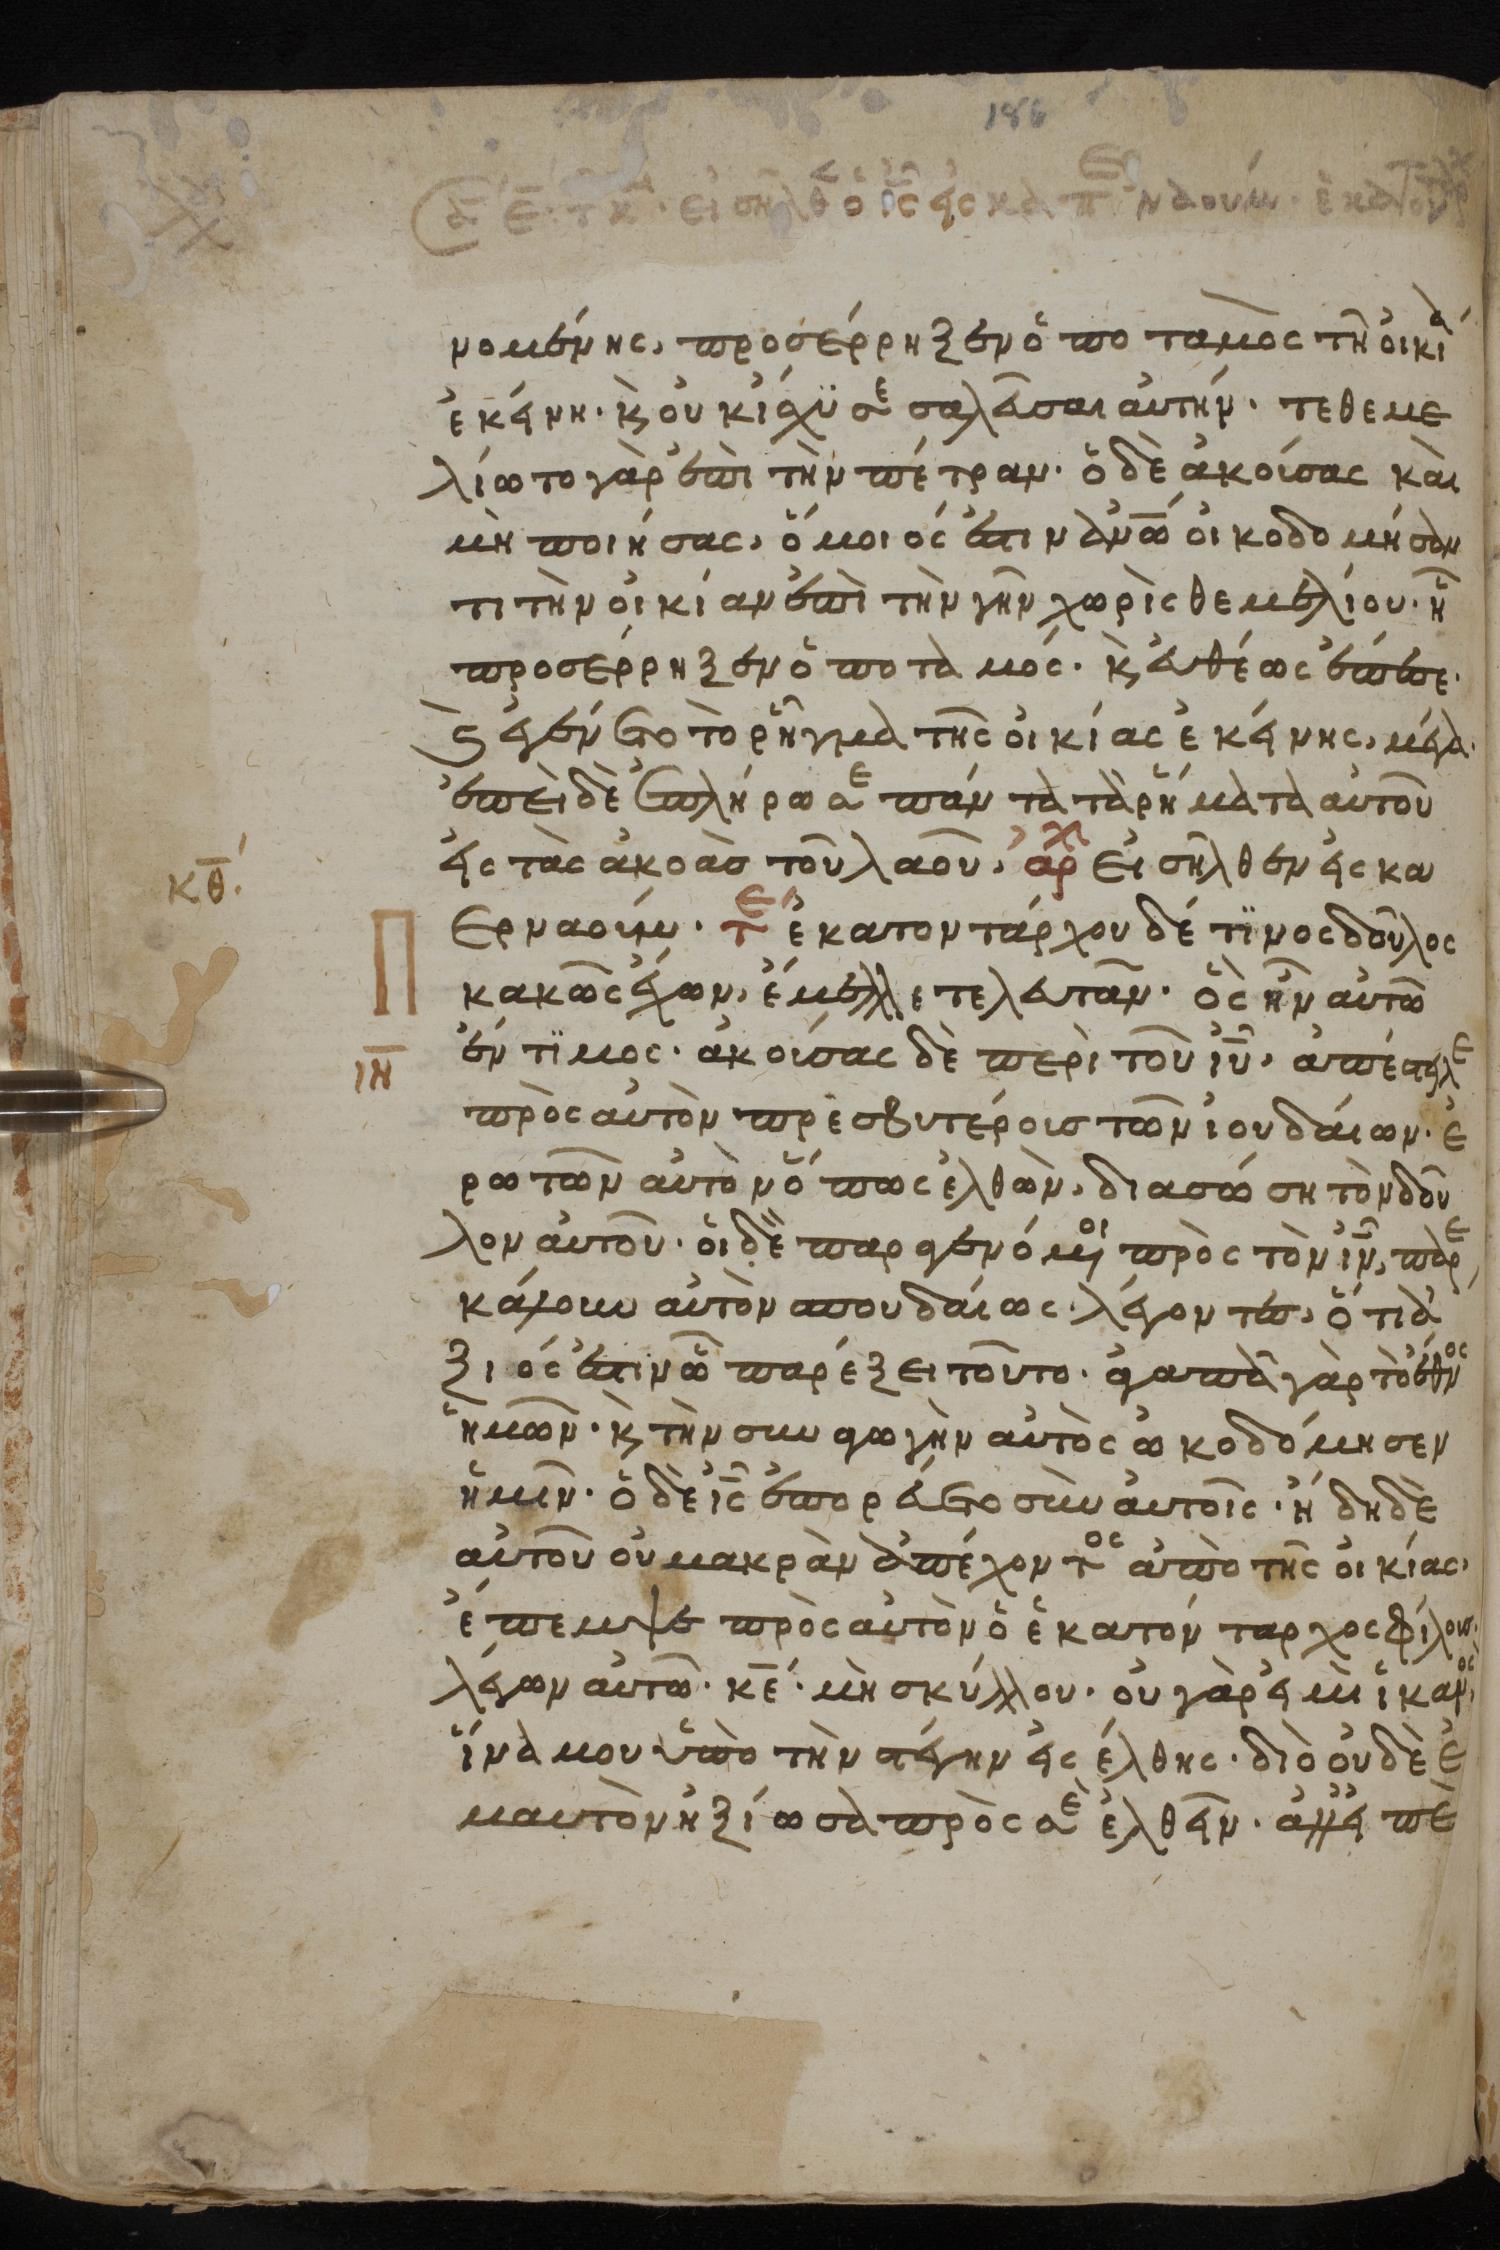 186
εἰσῆλθ ὁ ις εἰς κα π ναούμ. ἑκατον
νομένης, προσέρρηξεν ὁ ποταμὸς τῆ οἰκία
ἐκείνη. κ οὐκ ἴσχυσε σαλεῦσαι αὐτήν. τεθεμε
λίωτο γὰρ ἐπὶ τὴν πέτραν. ὁ δὲ ἀκούσας καὶ
μὴ ποιήσας, ὅμοιός ἐστιν ανω οἰκοδομήσαν
τι τὴν οἰκίαν ἐπὶ τὴν γῆν χωρὶς θεμελίου. ἧ
προσέρρηξεν ὁ ποταμός. κ εὐθέως ἔπεσε.
κ ἐγένετο τὸ ρῆγμα τῆς οἰκίας ἐκείνης, μέγα.
ἐπεὶ δὲ ἐπλήρωσε πάντα τὰ ρήματα αὐτοῦ
εἰς τὰς ἀκοὰς τοῦ λαοῦ, ἀρχ εἰσῆλθεν εἰς κα
κθ.
περναούμ. τε ἑκατοντάρχου δέ τϊνος δοῦλος
κακῶς ἔχων, ἔμελλε τελευτᾶν. ὃς ἦν αὐτῶ
ιη
ἔντϊμος. ἀκούσας δὲ περὶ τοῦ ιυ, ἀπέστειλε
πρὸς αὐτὸν πρεσβυτέρους τῶν ἰουδαίων. ἐ
ρωτῶν αὐτὸν ὅπως ἐλθὼν, διασώση τὸν δοῦ
λον αὐτοῦ. οἱ δὲ παραγενόμενοι πρὸς τὸν ιν, παρε
κάλουν αὐτὸν σπουδαίως. λέγοντες, ὅτι ἄ
ξιός ἐστιν ὧ παρέξει τοῦτο. ἀγαπᾶ γὰρ τὸ ἔθνος
ἡμῶν. κ τὴν συναγωγὴν αὐτὸς ὠκοδόμησεν
ἡμῖν. ὁ δὲ ις ἐπορεύετο σὺν αὐτοῖς. ἤδη δὲ
αὐτοῦ οὐ μακρὰν ἀπέχοντος ἀπὸ τῆς οἰκίας,
ἔπεμψε πρὸς αὐτὸν ὁ ἑκατόνταρχος φίλους.
λέγων αὐτῶ. κε. μὴ σκύλλου. οὐ γὰρ εἰμὶ ἱκανός,
ἵνα μου ὑπὸ τὴν στέγην εἰς έλθης. διὸ οὐδὲ ἐ
μαυτὸν ἠξίωσα πρὸς σὲ ἐλθεῖν. ἀλλ' εἰπὲ